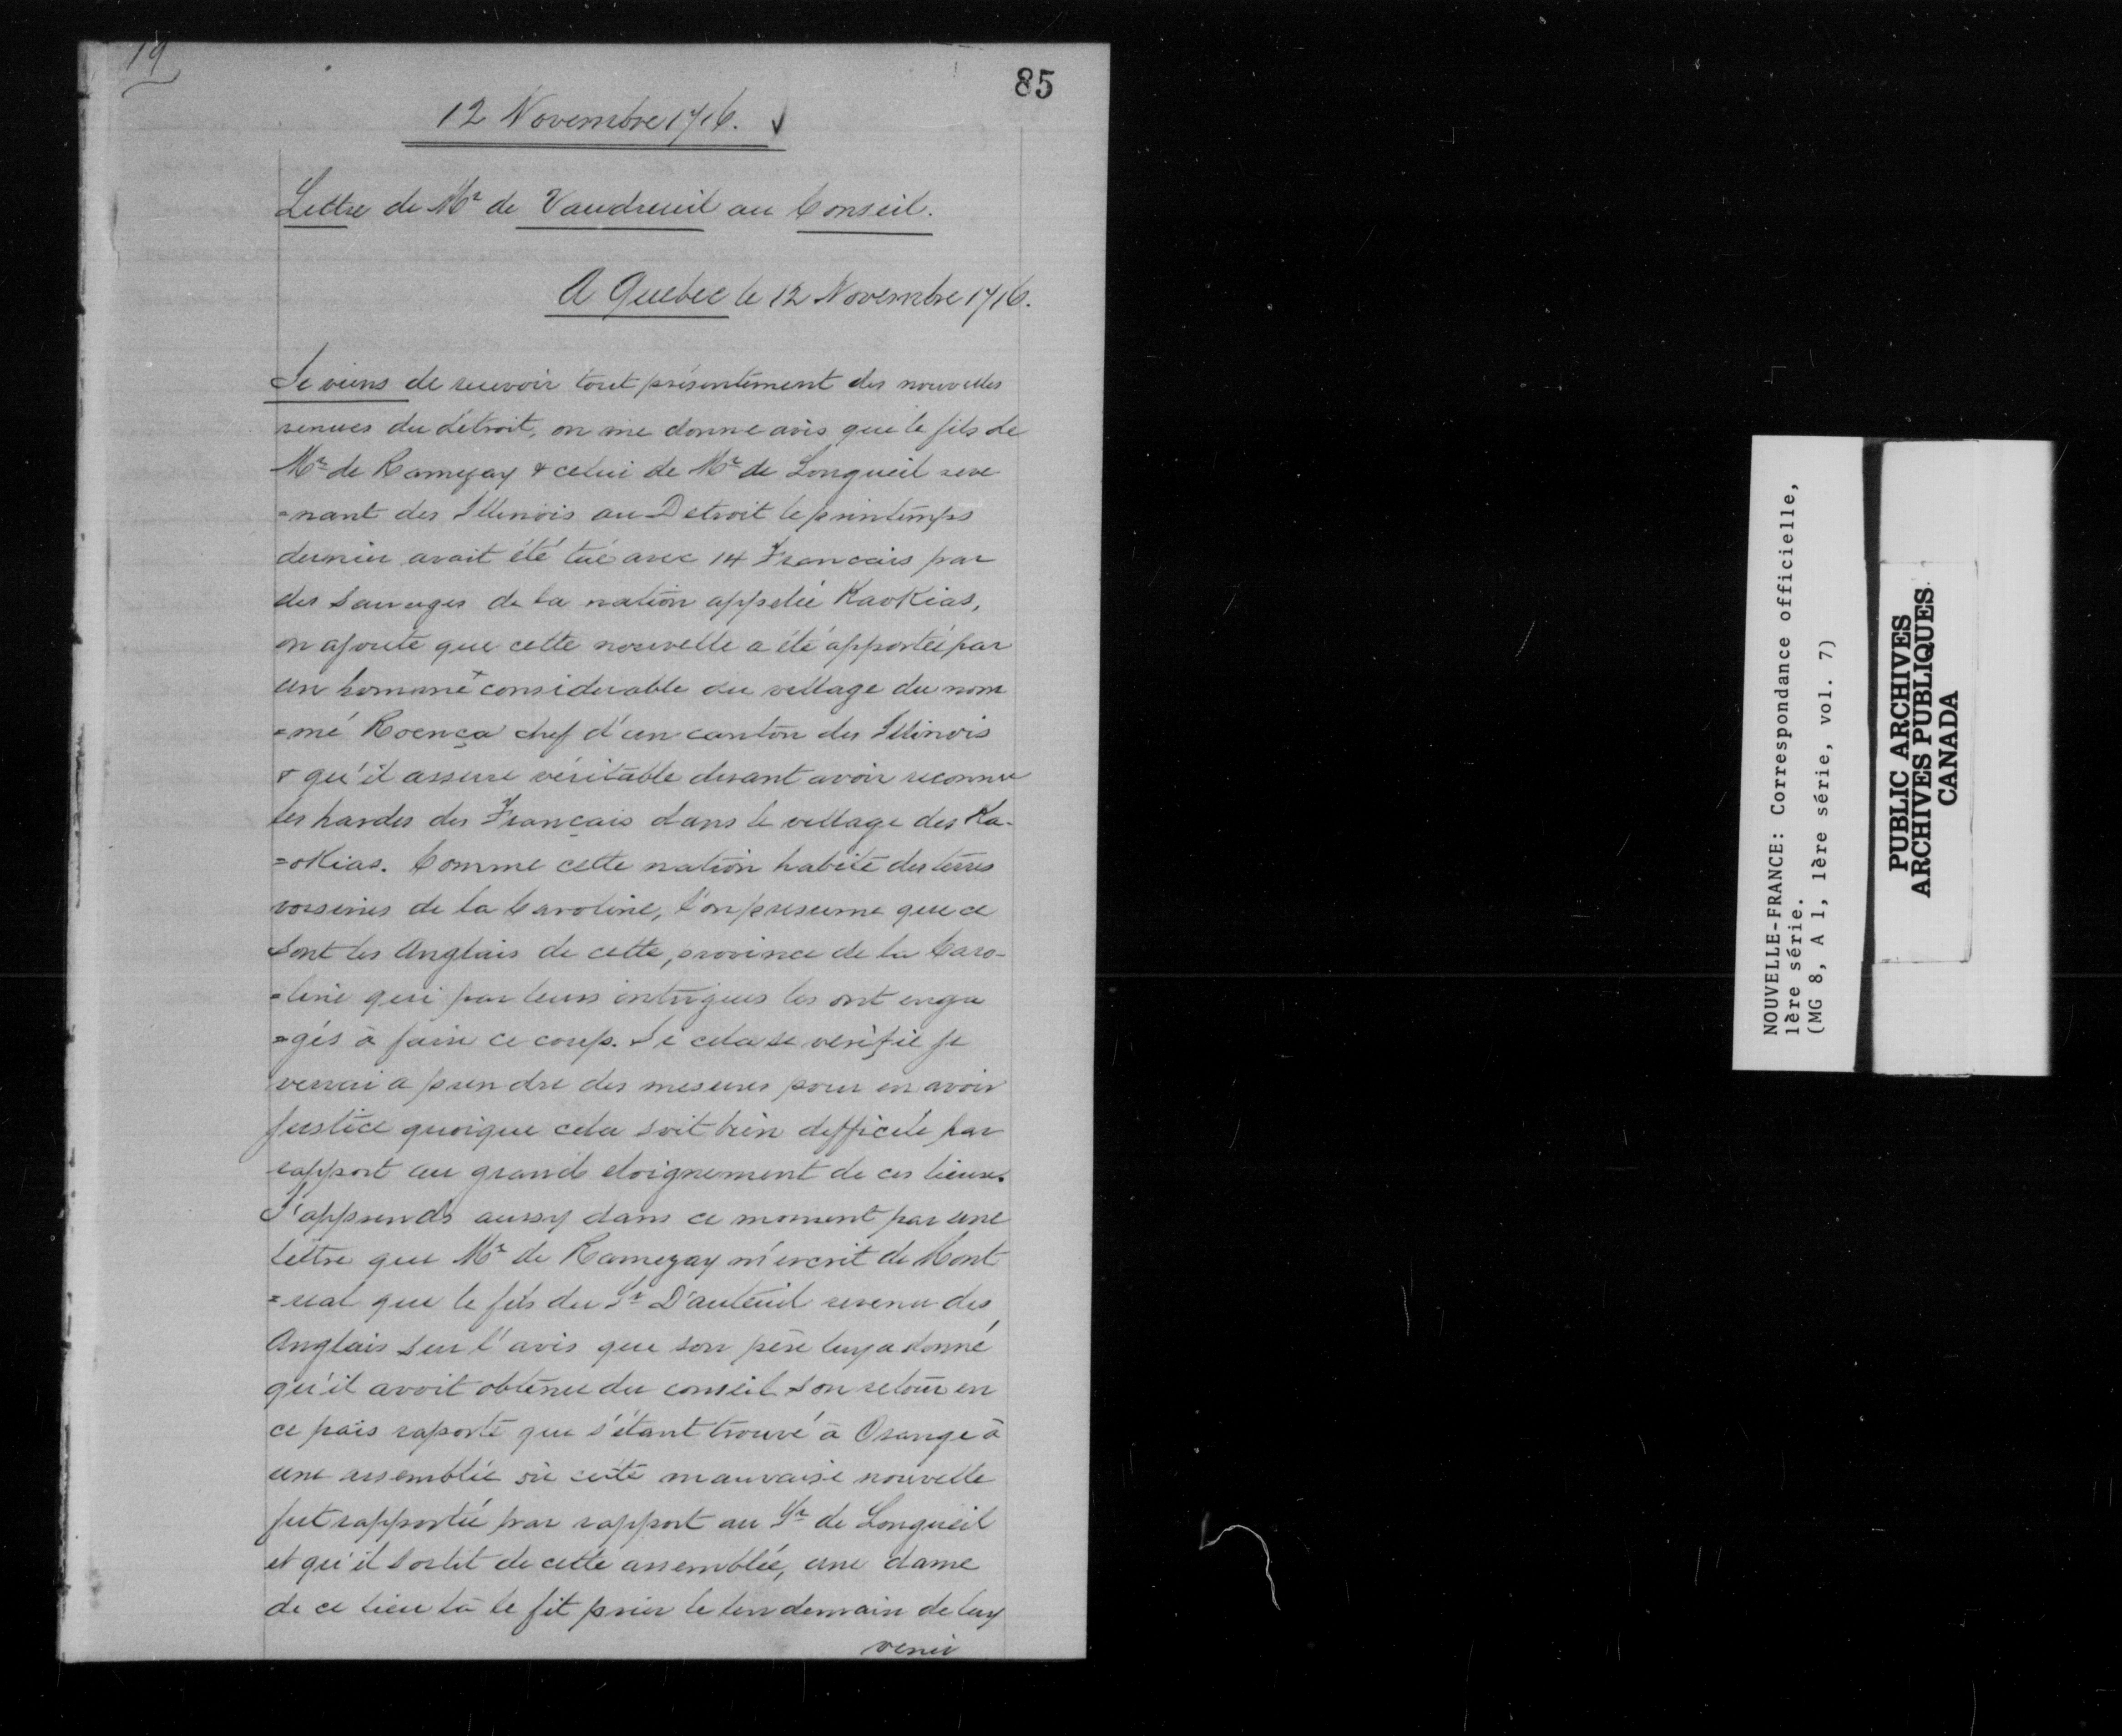 19
85
12 Novembre 1716.
Lettre de Mr de Vaudreuil au Conseil.
A Quebec le 12 Novembre 1716.
Je viens de recevoir tout présentement des nouvelles
venues du détroit, on me donne avis que le fils de
Mr de Ramezay & celui de Mr de Longueil reve
=nant des Illinois au Detroit le printemps
dernier avait été tué avec 14 Francais par
des Sauvages de la nation appelée KaoKias,
on ajoute que cette nouvelle a été apportée par
un homme + considerable du village du nom
=mé Roença chef d'un canton des Illinois
& qu'il assure véritable disant avoir reconnu
les hardes des Français dans le village des Ka-
=oKias. Comme cette nation habite des terres
voisines de la Caroline, l'on presume que ce
sont les Anglais de cette province de la Caro-
=line qui par leurs intrigues les ont enga
=gés à faire ce coup. Si cela se verifie je
verrai a prendre des mesures pour en avoir
justice quoique cela soit bien difficile par
rapport au grand eloignement de ces lieux.
J'apprends aussy dans ce moment par une
lettre que Mr de Ramezay m'ecrit de Mont
=real que le fils du Sr D'auteuil revenu des
Anglais sur l'avis que son père luy a donné
qu'il avoit obtenu du conseil son retour en
ce païs raporte que s'étant trouvé à Orange à
une assemblée où cette mauvaise nouvelle
fut rapportée par rapport au Sr de Longueil
et qu'il sortit de cette assemblée, une dame
de ce lieu là le fit prier le lendemain de luy
venir
NOUVELLE-FRANCE: Correspondance officielle,
1ère série.
(MG 8, A 1, 1ère série, vol. 7)
PUBLIC ARCHIVES
ARCHIVES PUBLIQUES
CANADA